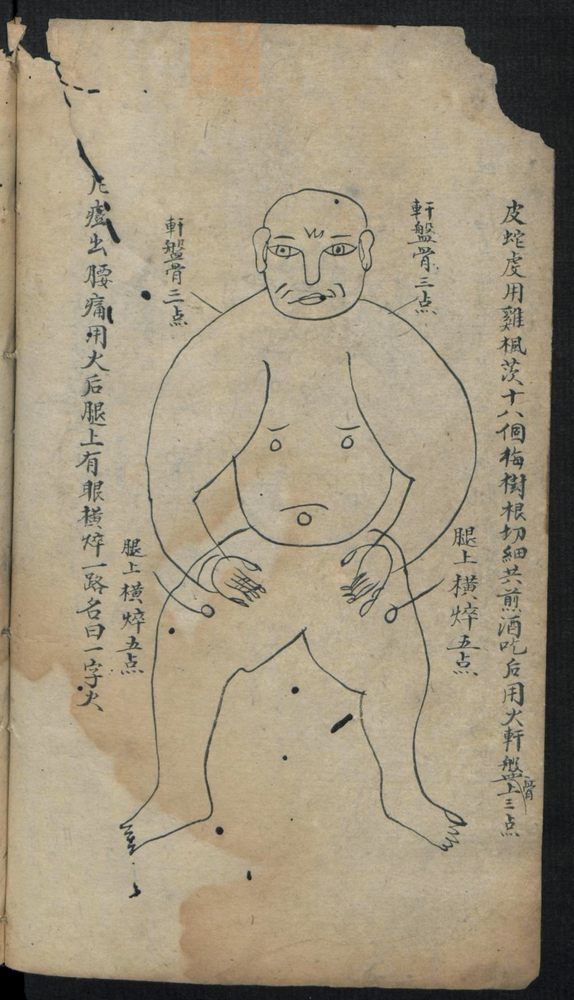 皮蛇虔用雞楓茨十八個梅樹根切細共煎酒吃后用火軒盤骨上三点
軒盤骨三点
腿上橫焠五点
軒盤骨三点
腿上橫焠五点
痧出腰痛用火后腿上有眼橫焠一路名曰一字火